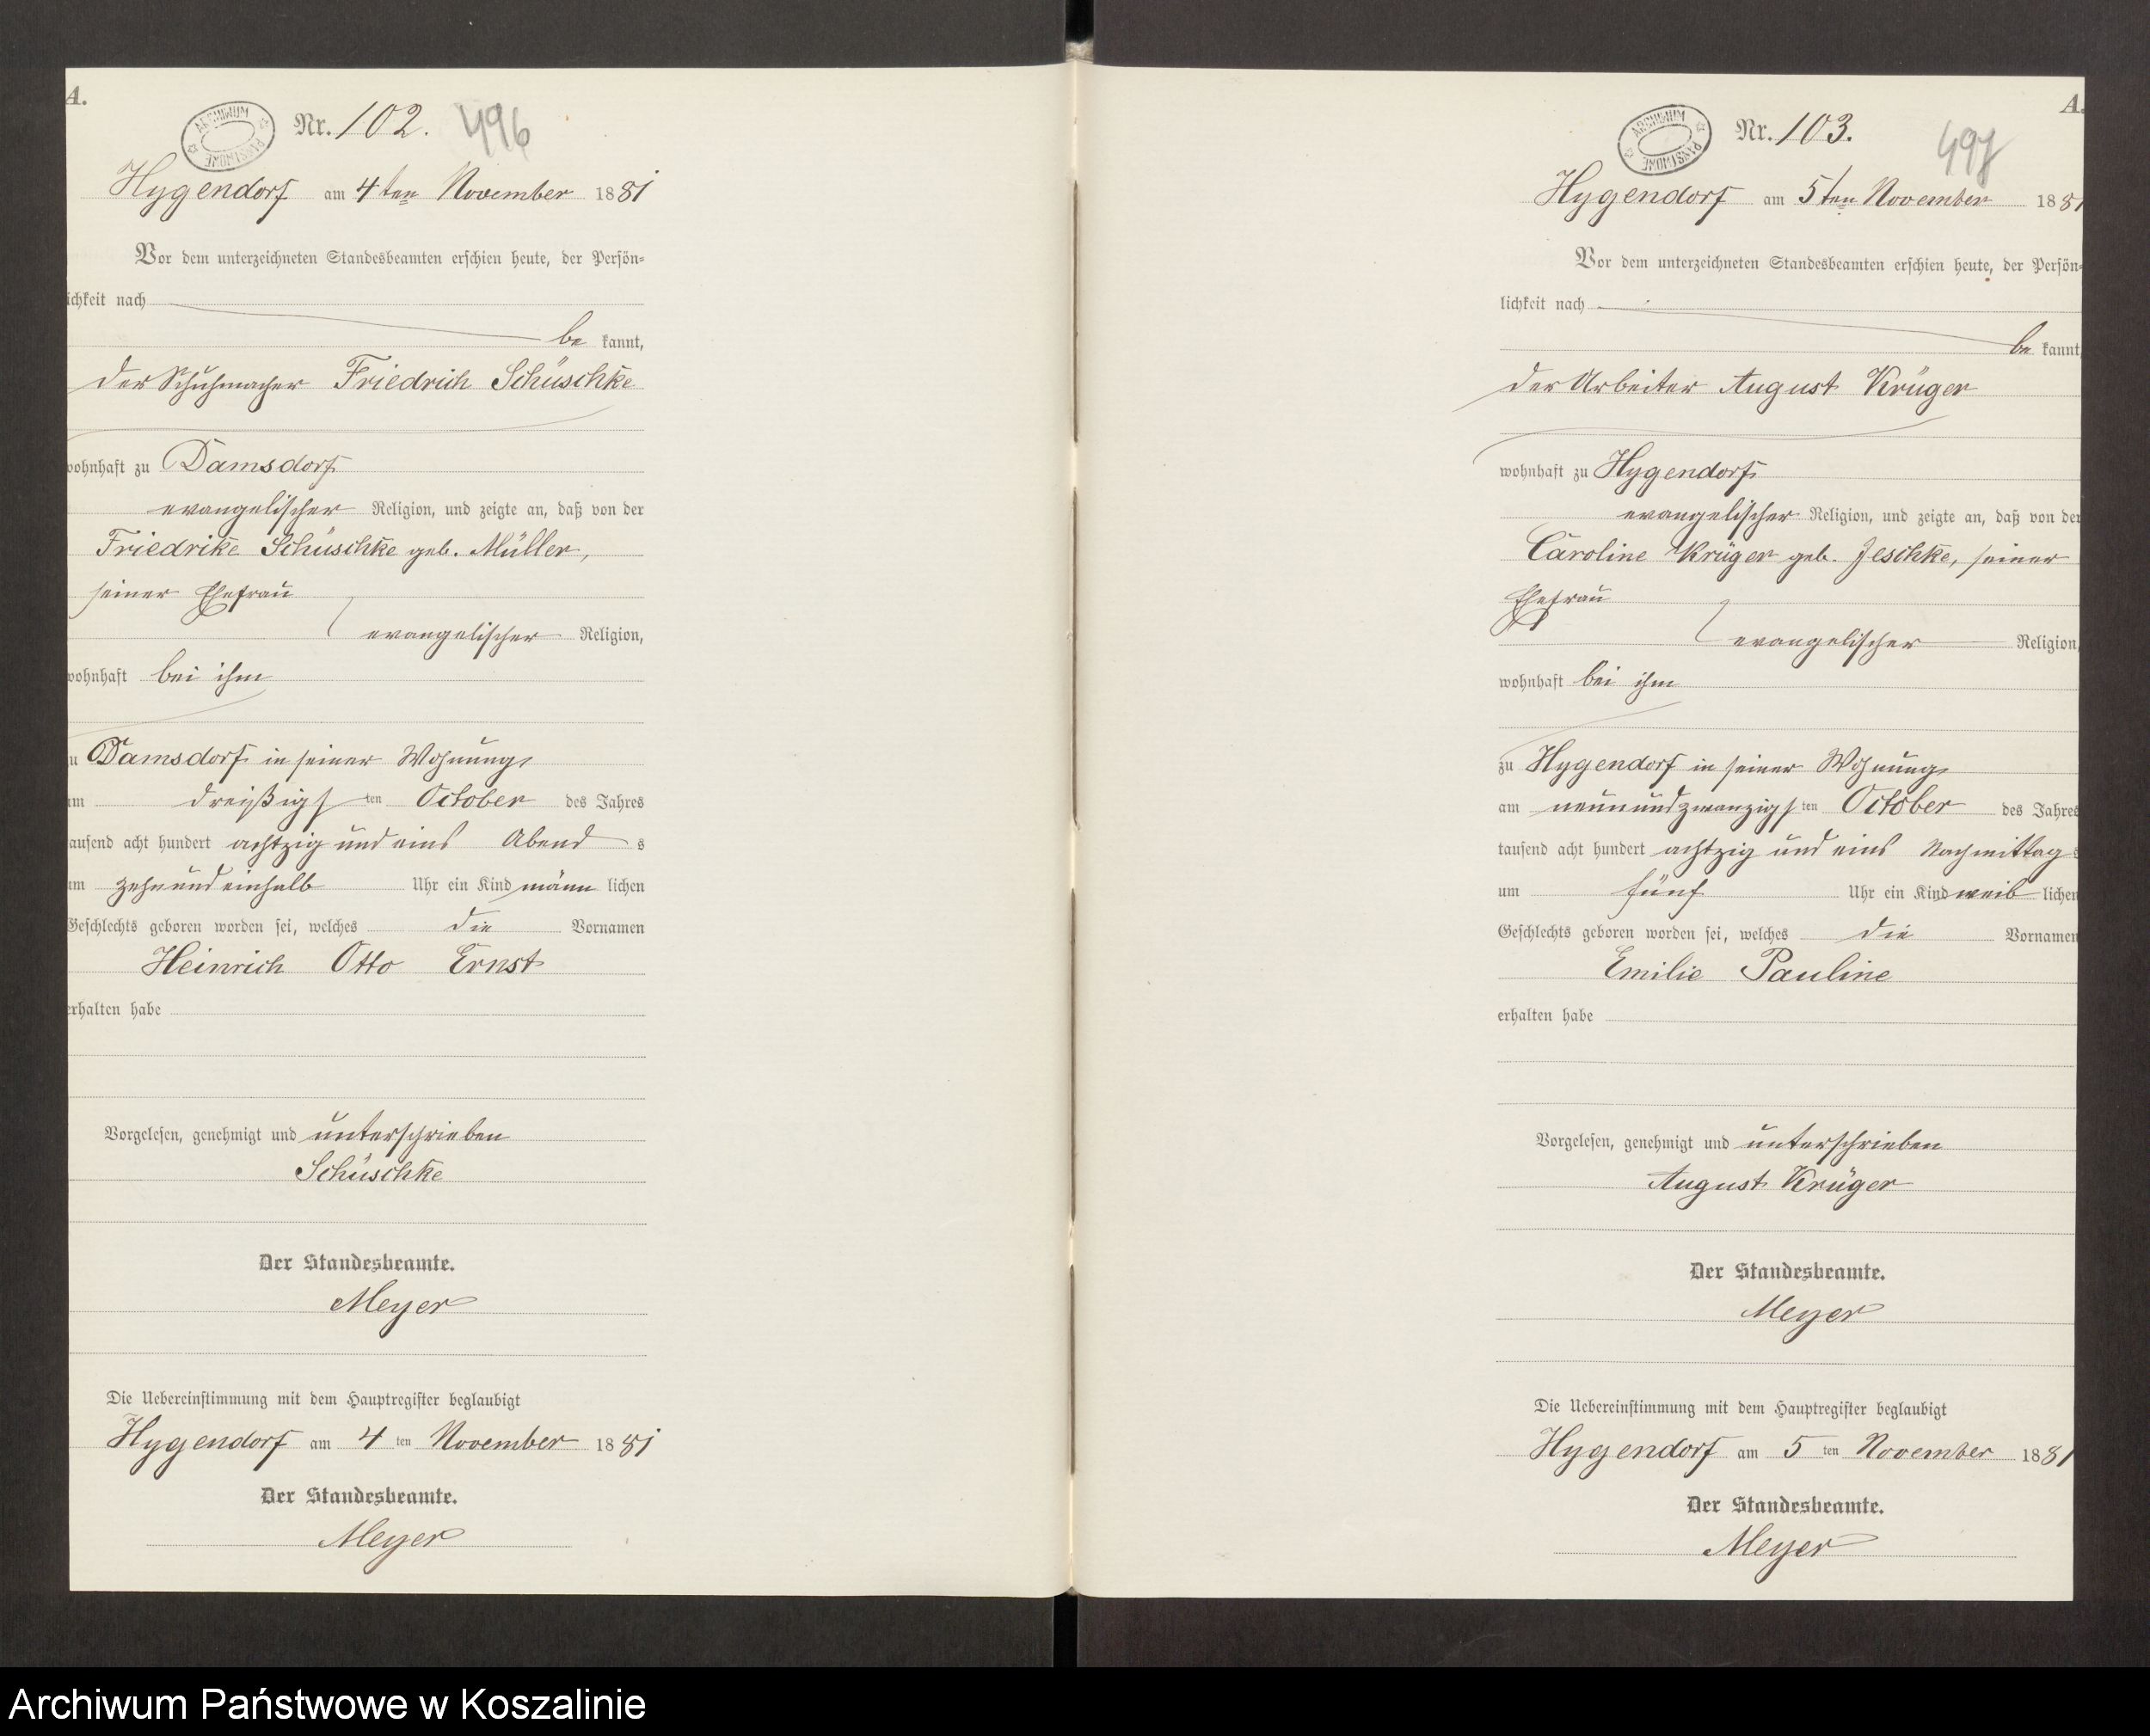 A.
ARCHIWUM PAŃSTWOWE
Nr. 102. 496
Hygendorf am 4ten November 1881
Vor dem unterzeichneten Standesbeamten erschien heute, der Persön=
ichkeit nach
be kannt,
der Schuhmacher Friedrich Schüschke
wohnhaft zu Damsdorf
evangelischer Religion, und zeigte an, daß von der
Friedrike Schüschke geb. Müller,
seiner Ehefrau
evangelischer Religion,
wohnhaft bei ihm
u Damsdorf in seiner Wohnung
am dreißigs ten October des Jahres
tausend acht hundert achtzig und eins Abend s
um zehn und einhalb Uhr ein Kind männ lichen
Geschlechts geboren worden sei, welches die Vornamen
Heinrich Otto Ernst
erhalten habe
Vorgelesen, genehmigt und unterschrieben
Schüschke
Der Standesbeamte.
Meyer
Die Uebereinstimmung mit dem Hauptregister beglaubigt
Hygendorf am 4 ten November 1881
Der Standesbeamte.
Meyer
A.
ARCHIWUM PAŃSTWOWE
Nr. 103. 497
Hygendorf am 5ten November 1881
Vor dem unterzeichneten Standesbeamten erschien heute, der Persön=
lichkeit nach
be kannt
der Arbeiter August Krüger
wohnhaft zu Hygendorf
evangelischer Religion, und zeigte an, daß von der
Caroline Krüger geb. Jeschke, seiner
Ehefrau
evangelischer Religion,
wohnhaft bei ihm
zu Hygendorf in seiner Wohnung
am neunundzwanzigs ten October des Jahres
tausend acht hundert achtzig und eins Nachmittag s
um fünf Uhr ein Kind weib lichen
Geschlechts geboren worden sei, welches die Vornamen
Emilie Pauline
erhalten habe
Vorgelesen, genehmigt und unterschrieben
August Krüger
Der Standesbeamte.
Meyer
Die Uebereinstimmung mit dem Hauptregister beglaubigt
Hygendorf am 5 ten November 1881
Der Standesbeamte.
Meyer
Archiwum Państwowe w Koszalinie